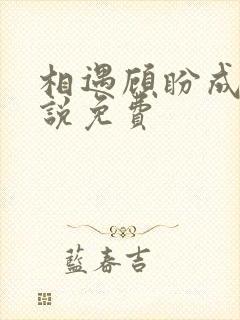 相遇顾盼成
說免費
藍春吉